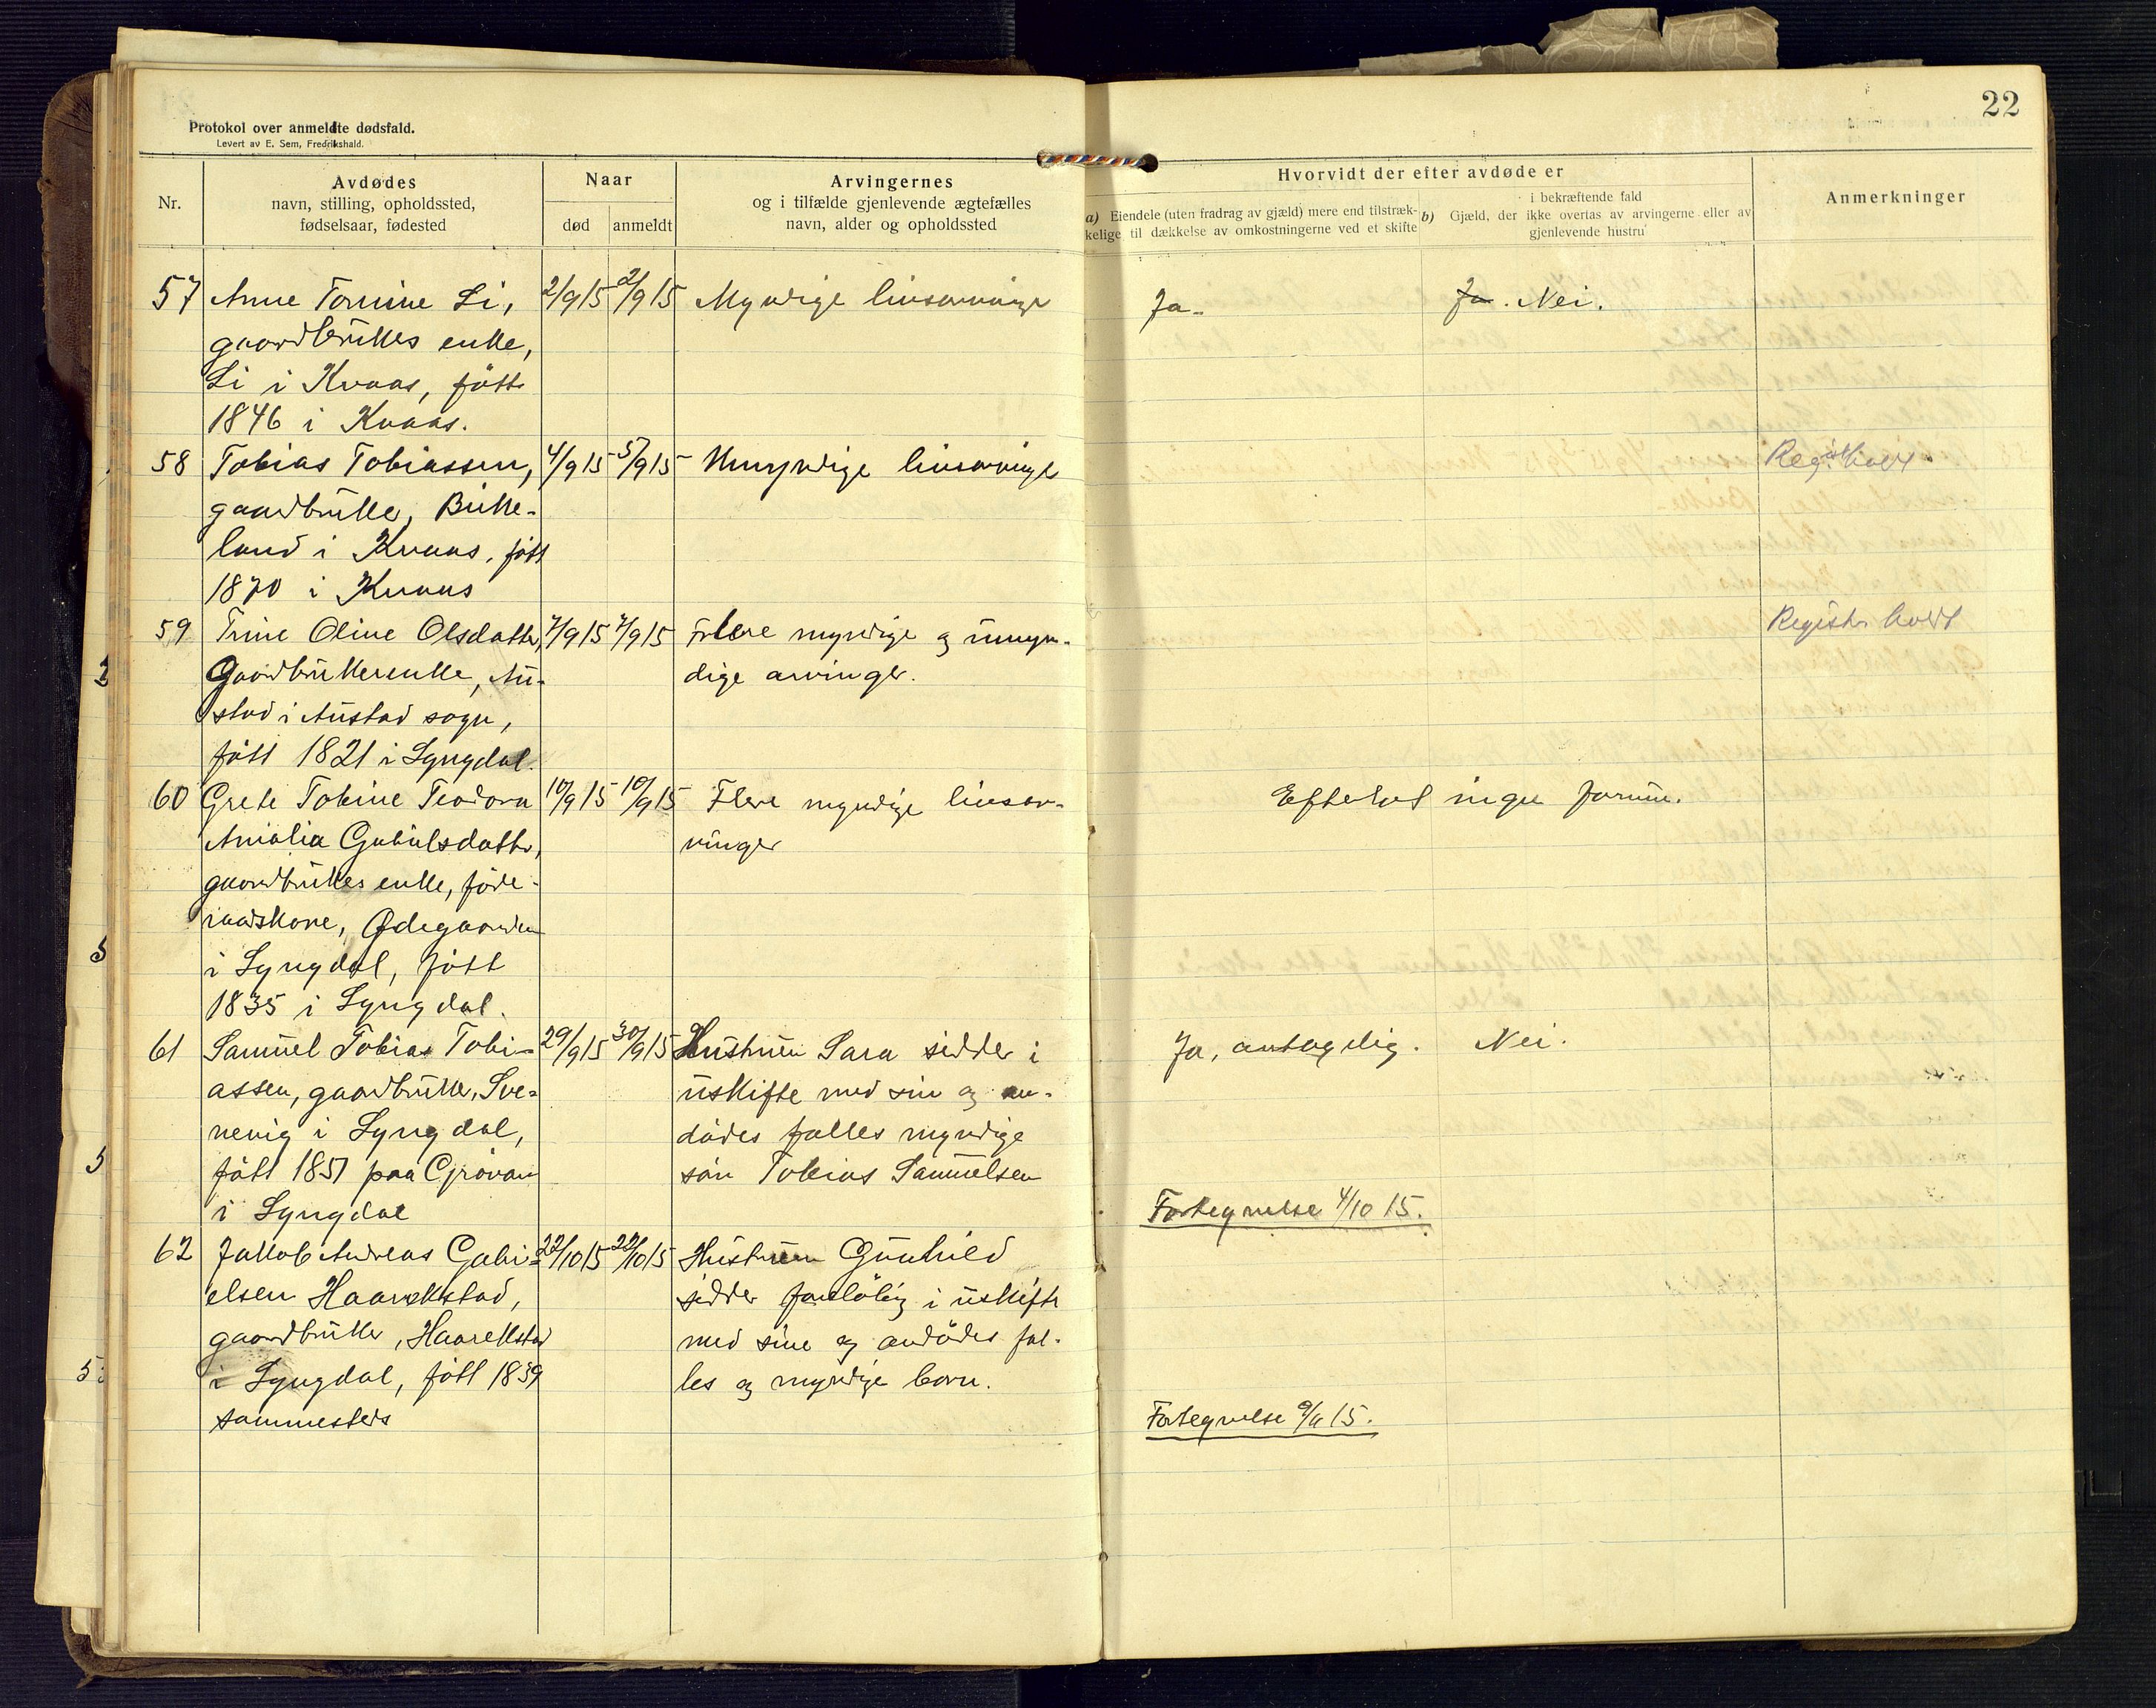 22
Protokol over anmeldte dødsfald.
Levert av E. Sem, Fredrikshald.
Nr.
Avdødes
navn, stilling, opholdssted,
fødselsaar, fødested
Naar
død
anmeldt
Arvingernes
og i tilfælde gjenlevende ægtefælles
navn, alder og opholdssted
Hvorvidt der efter avdøde er
a) Eiendele (uten fradrag av gjæld) mere end tilstræk-
kelige til dækkelse av omkostningerne ved et skifte
i bekræftende fald
b) Gjæld, der ikke overtas av arvingerne eller av
gjenlevende hustru
Anmerkninger
57 Anne Tomine Li, 2/9 15 2/9 15 Myndige livsarvinger Ja. Ja. Nei.
gaardbrukers enke,
Li i Kvaas, født
1846 i Kvaas.
58 Tobias Tobiassen, 4/9 15 5/9 15 Umyndige livsarvinger Regist. holdt.
gaardbruker, Birke-
land i Kvaas, født
1870 i Kvaas
59 Trine Oline Olsdatter, 7/9 15 7/9 15 Flere myndige og umyn- Registr. holdt
Gaardbrukerenke, Au- dige arvinger.
stad i Austad sogn,
født 1821 i Lyngdal.
60 Grete Tobine Teodora 10/9 15 10/9 15 Flere myndige livsar- Efterlot ingen formue.
Amalia Gabrielsdatter, vinger
gaardbrukers enke, føde-
raadskone, Ødegaarden
i Lyngdal, født
1835 i Lyngdal.
61 Samuel Tobias Tobi- 29/9 15 30/9 15 Hustruen Sara sidder i Ja, antagelig. Nei.
assen, gaardbruker, Sve- uskifte med sin og av-
nevig i Lyngdal, dødes fælles myndige
født 1851 paa Grøvan søn Tobias Samuelsen
i Lyngdal Fortegnelse 4/10 15.
62 Jakob Andreas Gabri- 22/10 15 22/10 15 Hustruen Gunhild
elsen Haarikstad, sidder foreløbig i uskifte
gaardbruker, Haarikstad med sine og avdødes fæl-
i Lyngdal, født 1839 les og myndige børn.
sammesteds Fortegnelse 9/11 15.